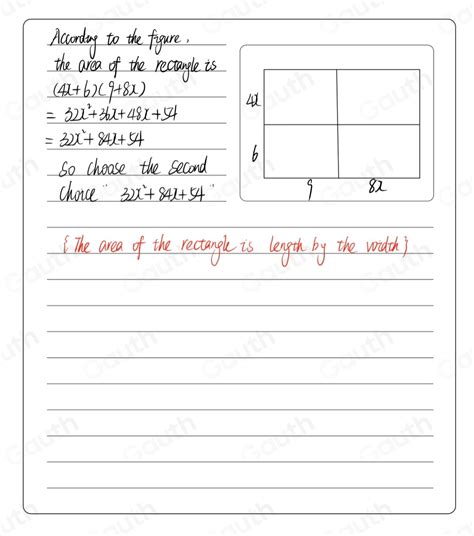 According to the figure,
the area of the rectangle is
(4x+6)(9+8x)
= 32x²+36x+48x+54
= 32x²+84x+54
So choose the second
Choice " 32x²+84x+54 "
4x
6
9
8x
{The area of the rectangle is length by the width}
Gauth